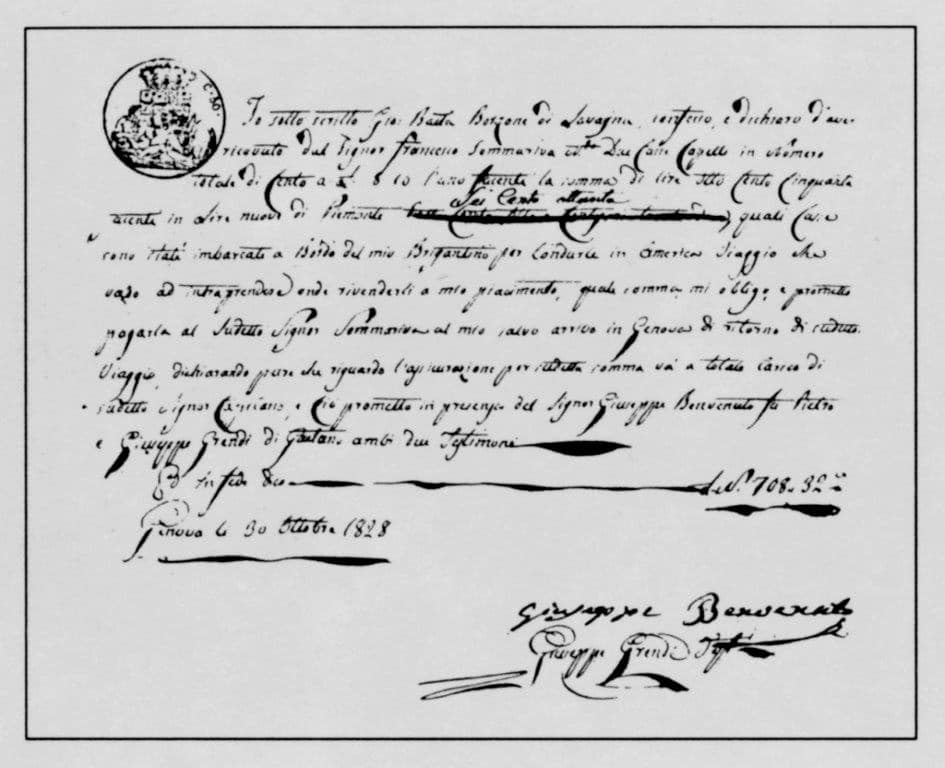 C. 50.
Io sotto scritto Gio: Batta Borzone di Lavagna, confesso, e dichiaro d'aver
ricevuto dal Signor Francesco Sommariva Due Casse Capelli in Numero
totale di Cento a 8 10 l'uno facente la somma di lire otto Cento Cinquanta
Sei Cento ottanta
in Lire nuove di Piemonte quali Casse
sono state imbarcate a Bordo del mio Brigantino per Condurle in America Viaggio che
vado ad intraprendere onde rivenderli a mio piacimento, quale somma, mi obligo, e prometto
pagarla al Sudetto Signor Sommariva al mio salvo arrivo in Genova di ritorno di sudetto
Viaggio, dichiarando pure che riguardo l'assicurazione per sudetta somma va a totale Carico di
sudetto Signor e Ciò prometto in presenza del Signor Giuseppe Benvenuto fu Pietro
e Giuseppe Grendi di Gaetano ambi due Testimoni
Ed in fede 708. 32
Genova li 30 Ottobre 1828
Giuseppe Benvenuto
Giuseppe Grendi